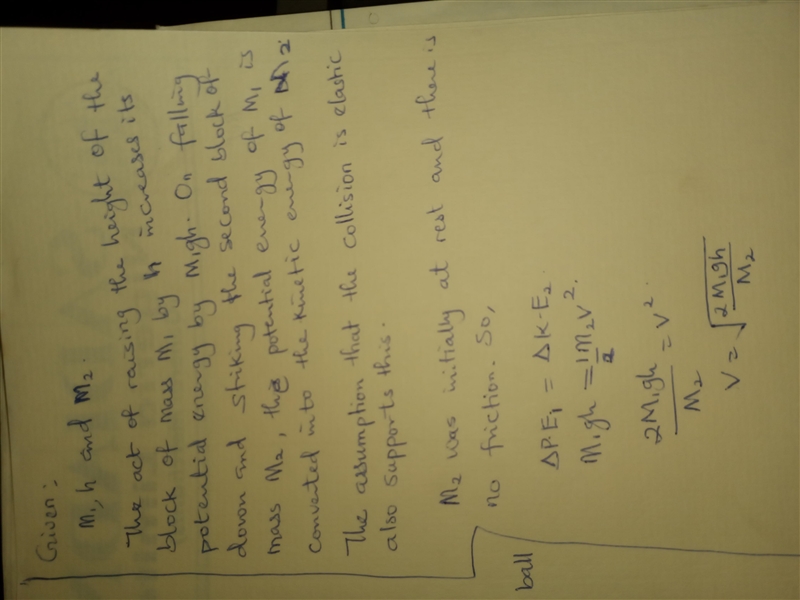 Given:
M₁, h and M₂.
The act of raising the height of the
block of mass M₁ by h increases its
potential energy by M₁gh. On falling
down and striking the second block of
mass M₂, the potential energy of M₁ is
converted into the kinetic energy of M2
The assumption that the collision is elastic
also supports this.
M₂ was initially at rest and there is
no friction. So,
ball
ΔPE₁ = ΔK·E₂.
M₁gh = 1/2 M₂V².
2M₁gh/M₂ = V²
V = √(2M₁gh/M₂)